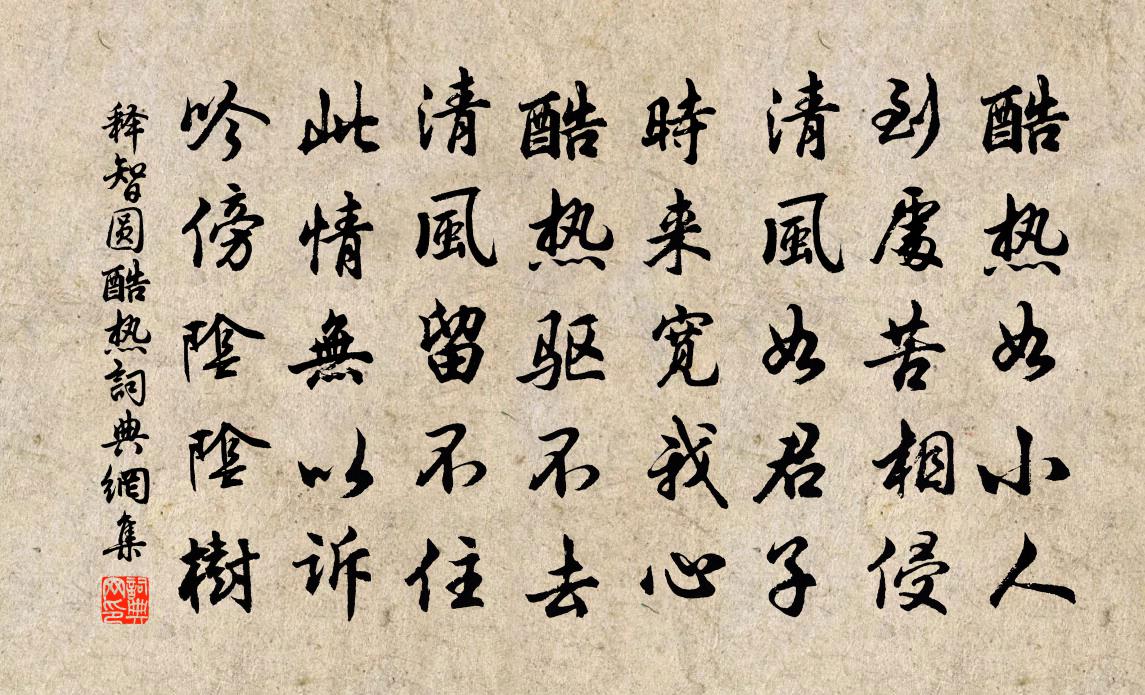 酷热如小人
到處苦相侵
清風如君子
時来宽我心
酷热驱不去
清風留不住
此情無以诉
吟傍陰陰樹
释智圆酷热詞典網集
詞典网印